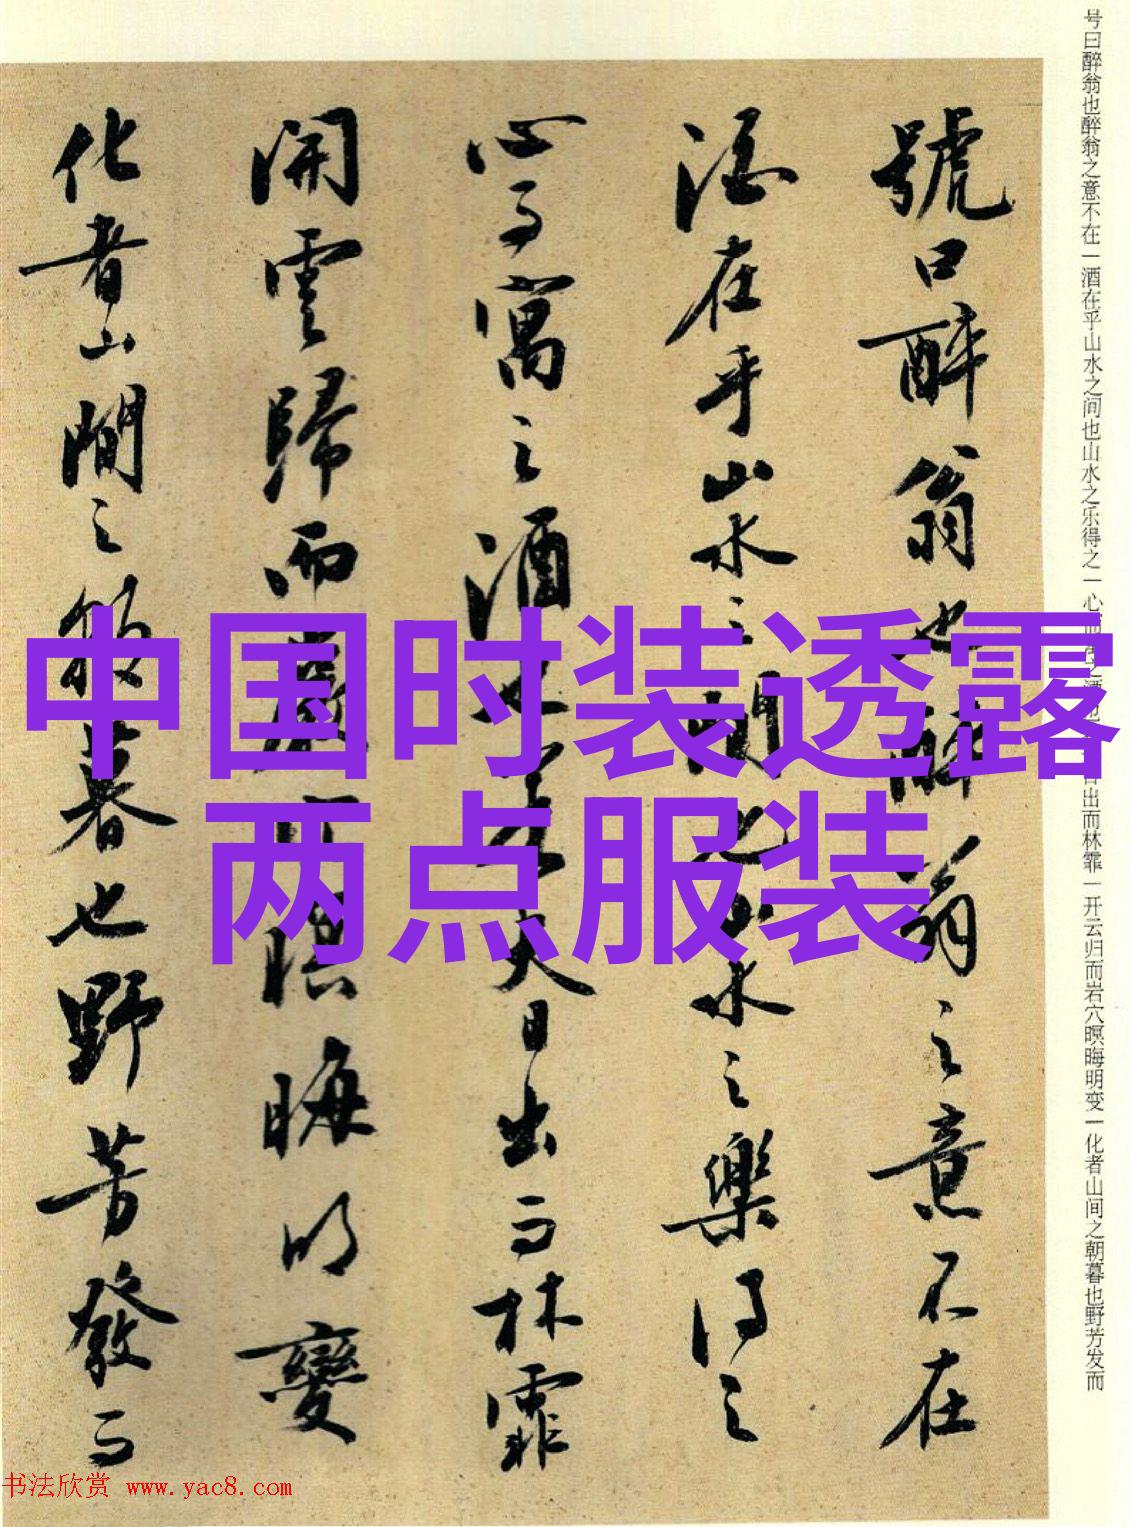 号曰醉翁也醉翁之意不在一酒在乎山水之间也山水之乐得之一心而寓之酒也日出而林霏一开云归而岩穴暝晦明变一化者山间之朝暮也野芳发而
號曰醉翁也醉翁之意不在
酒在乎山水之間也山水之樂得之
心而寓之酒也若夫日出而林霏
開雲歸而巖穴暝晦明變
化者山間之朝暮也野芳發而
中国时装透露
两点服装
书法欣赏 www.yac8.com